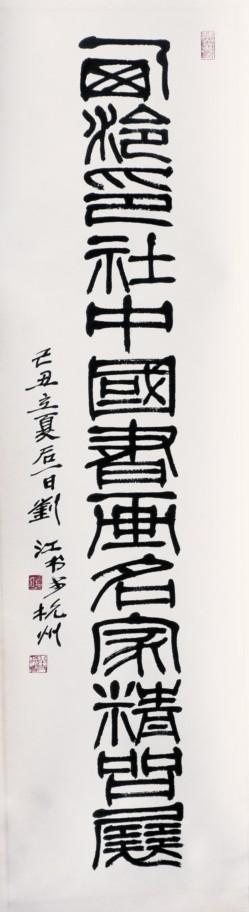 西泠印社中國書画名家精品展
己丑立夏后一日劉
江书于杭州